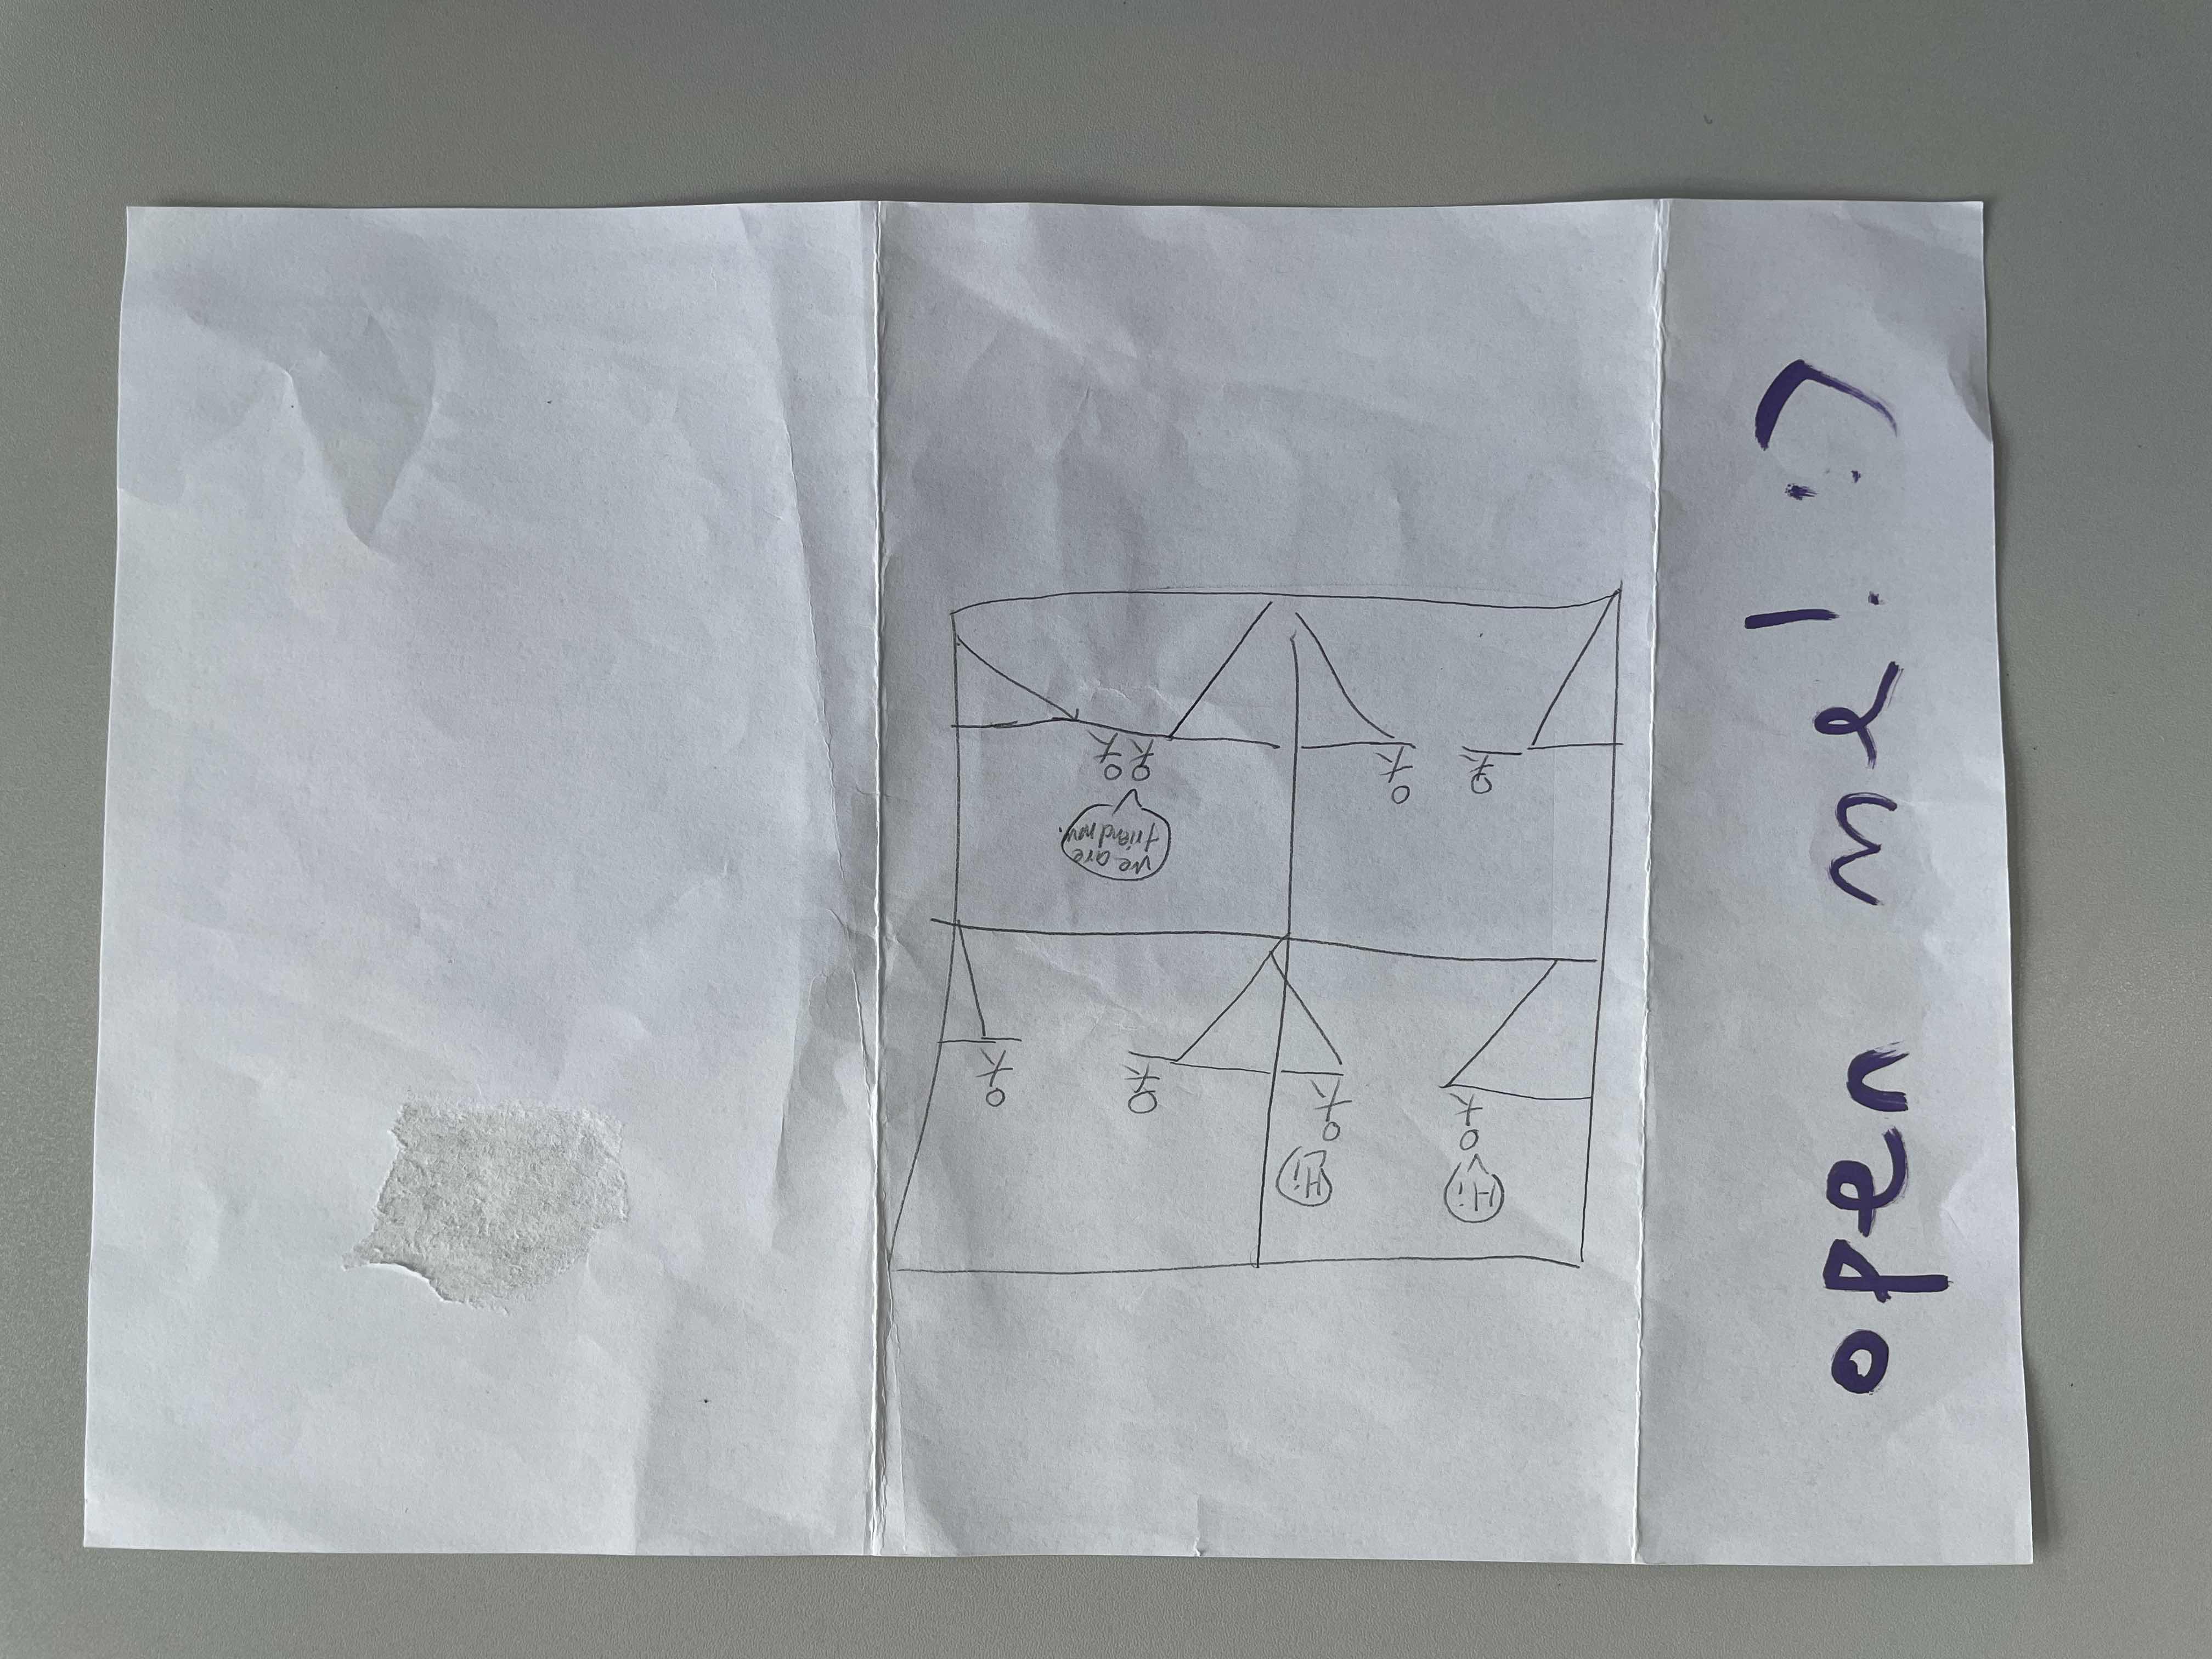 open me! :)
Hi
Hi
We are
friend now.